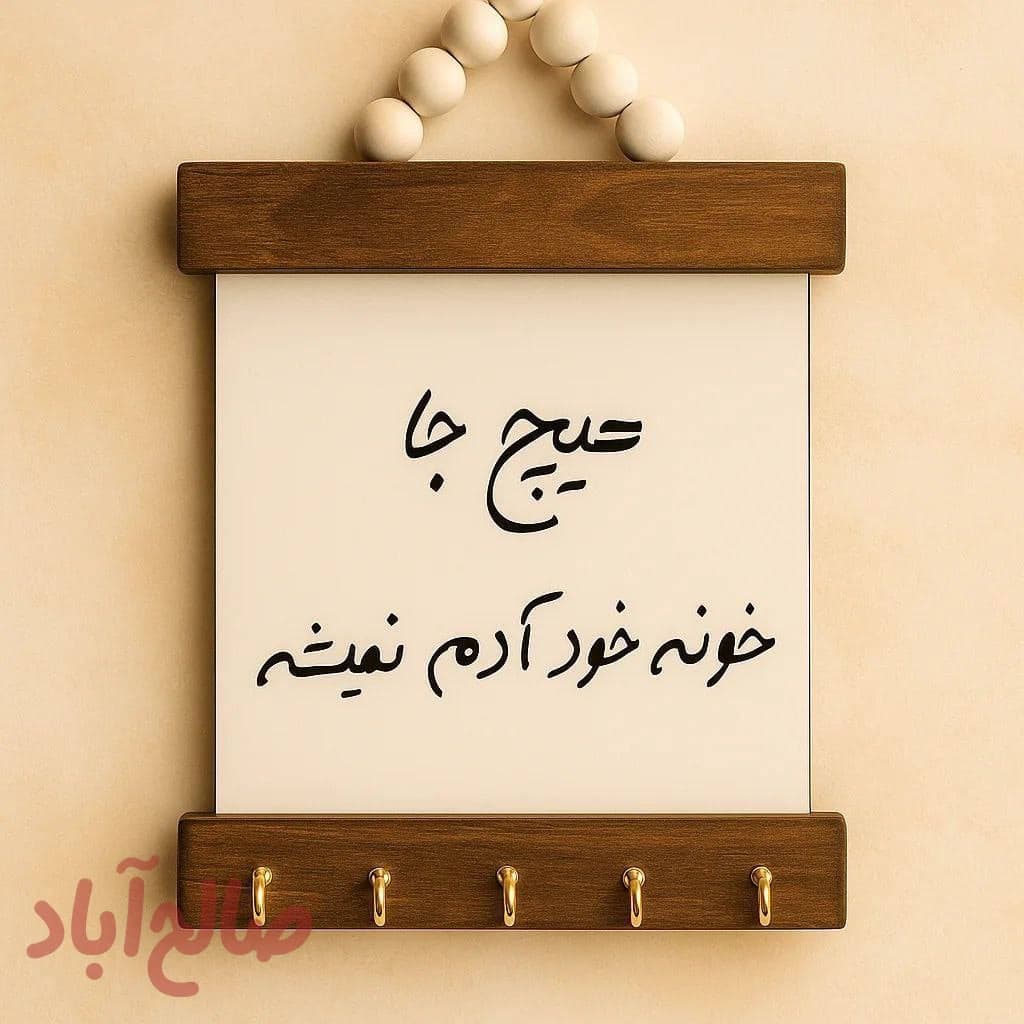 هیچ جا
خونه خود آدم نمیشه
صالح‌آباد